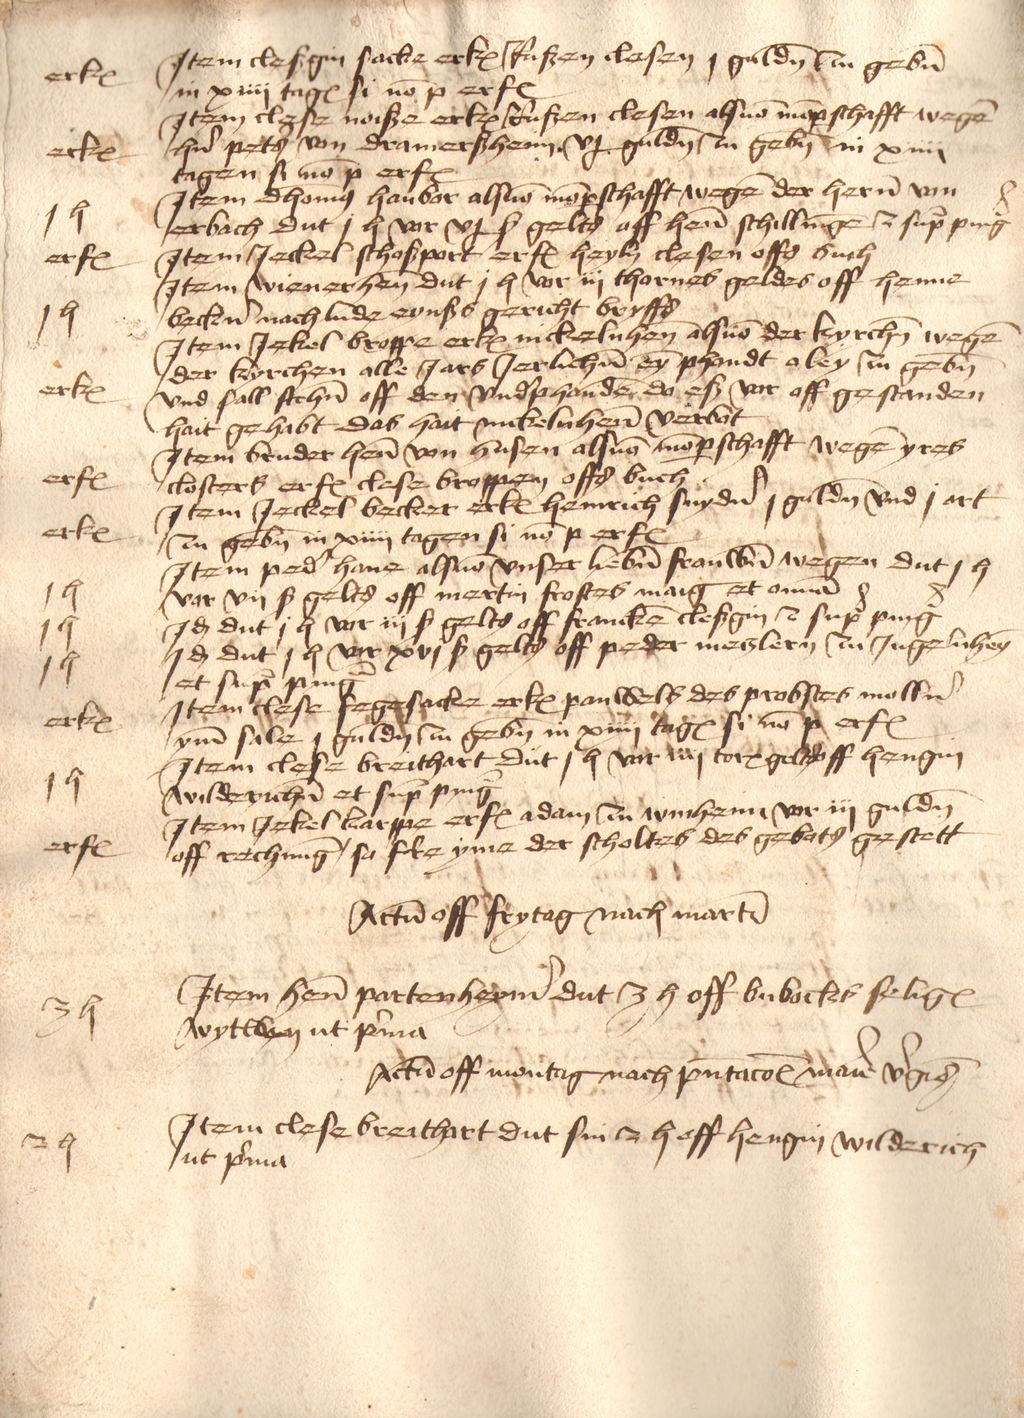 erk Item cleßgin sacke erk Kußen clesen j guldn zu gebn
in xiiii tag si no p erf
Item clese noiße erk Kußen clesen alsuo mo͞pschafft wege
erk hr peters von dramerßheim vj guldn zu gebn in xiiii
tagen si no p erf
Item dhomas haubor alsuo mo͞pschafft wege der hern von
1 h erbach dut j h vor vj ß gelts off hen schillinge 2 supr pingr
erf Item Jeckel schoßport erf heyln clesen offs buch
Item wienerhen dut j h vor iij thornes geldes off henne
1 h beckern nach lude eynßs gericht bryffs
Item Jekel broppe erk nickelnhen alsuo der kyrchen wege
der kyrchen alle Jars Jerlichen ey phondt oley zu geben
erk vnd sall stehn off den vndphanden do eß vor off gestanden
hait gehabt das hait nickelnhenn verbot
Item bruder hen von husen alsuo mo͞pschafft wege yres
erf closters erf clese broppen offs buch
Item Jeckel becker erk heinrich snyder j guldn vnd j ort
erk zu gebn in xiiii tagen si no p erf
Item peder hane alsuo vnser lieben frauwen wegen dut j h
1 h vor vij ß gelts off mertin frostes maig et omnia
1 h Id dut j h vor iij ß gelts off francken cleßgin 2 supr pingr
1 h Id dut j h vor xvj ß gelts off peder metzlern zu Ingelnheym
et supr pingr
Item clese segesacke erk pauwels des probstes moller
erk ym sale j guldn zu gebn in xiiii tag si no p erf
Item clese breithart dut j h vor iiij torn gelts off hengin
1 h wilderichen et supr pingr
Item Jekel karppe erf adam zu winheim vor iij guldn
erf off rechnung so ferre yme der scholtes des gebots gestett
Actu off frytag nach martini
3 h Item hen partenheymer dut 3 h off bubockes selig
wytwen ut prima
Actu off montag nach pntaco͞ marie vgis
2 h Item clese breithart dut sin 2 h off hengin wilderich
ut prima